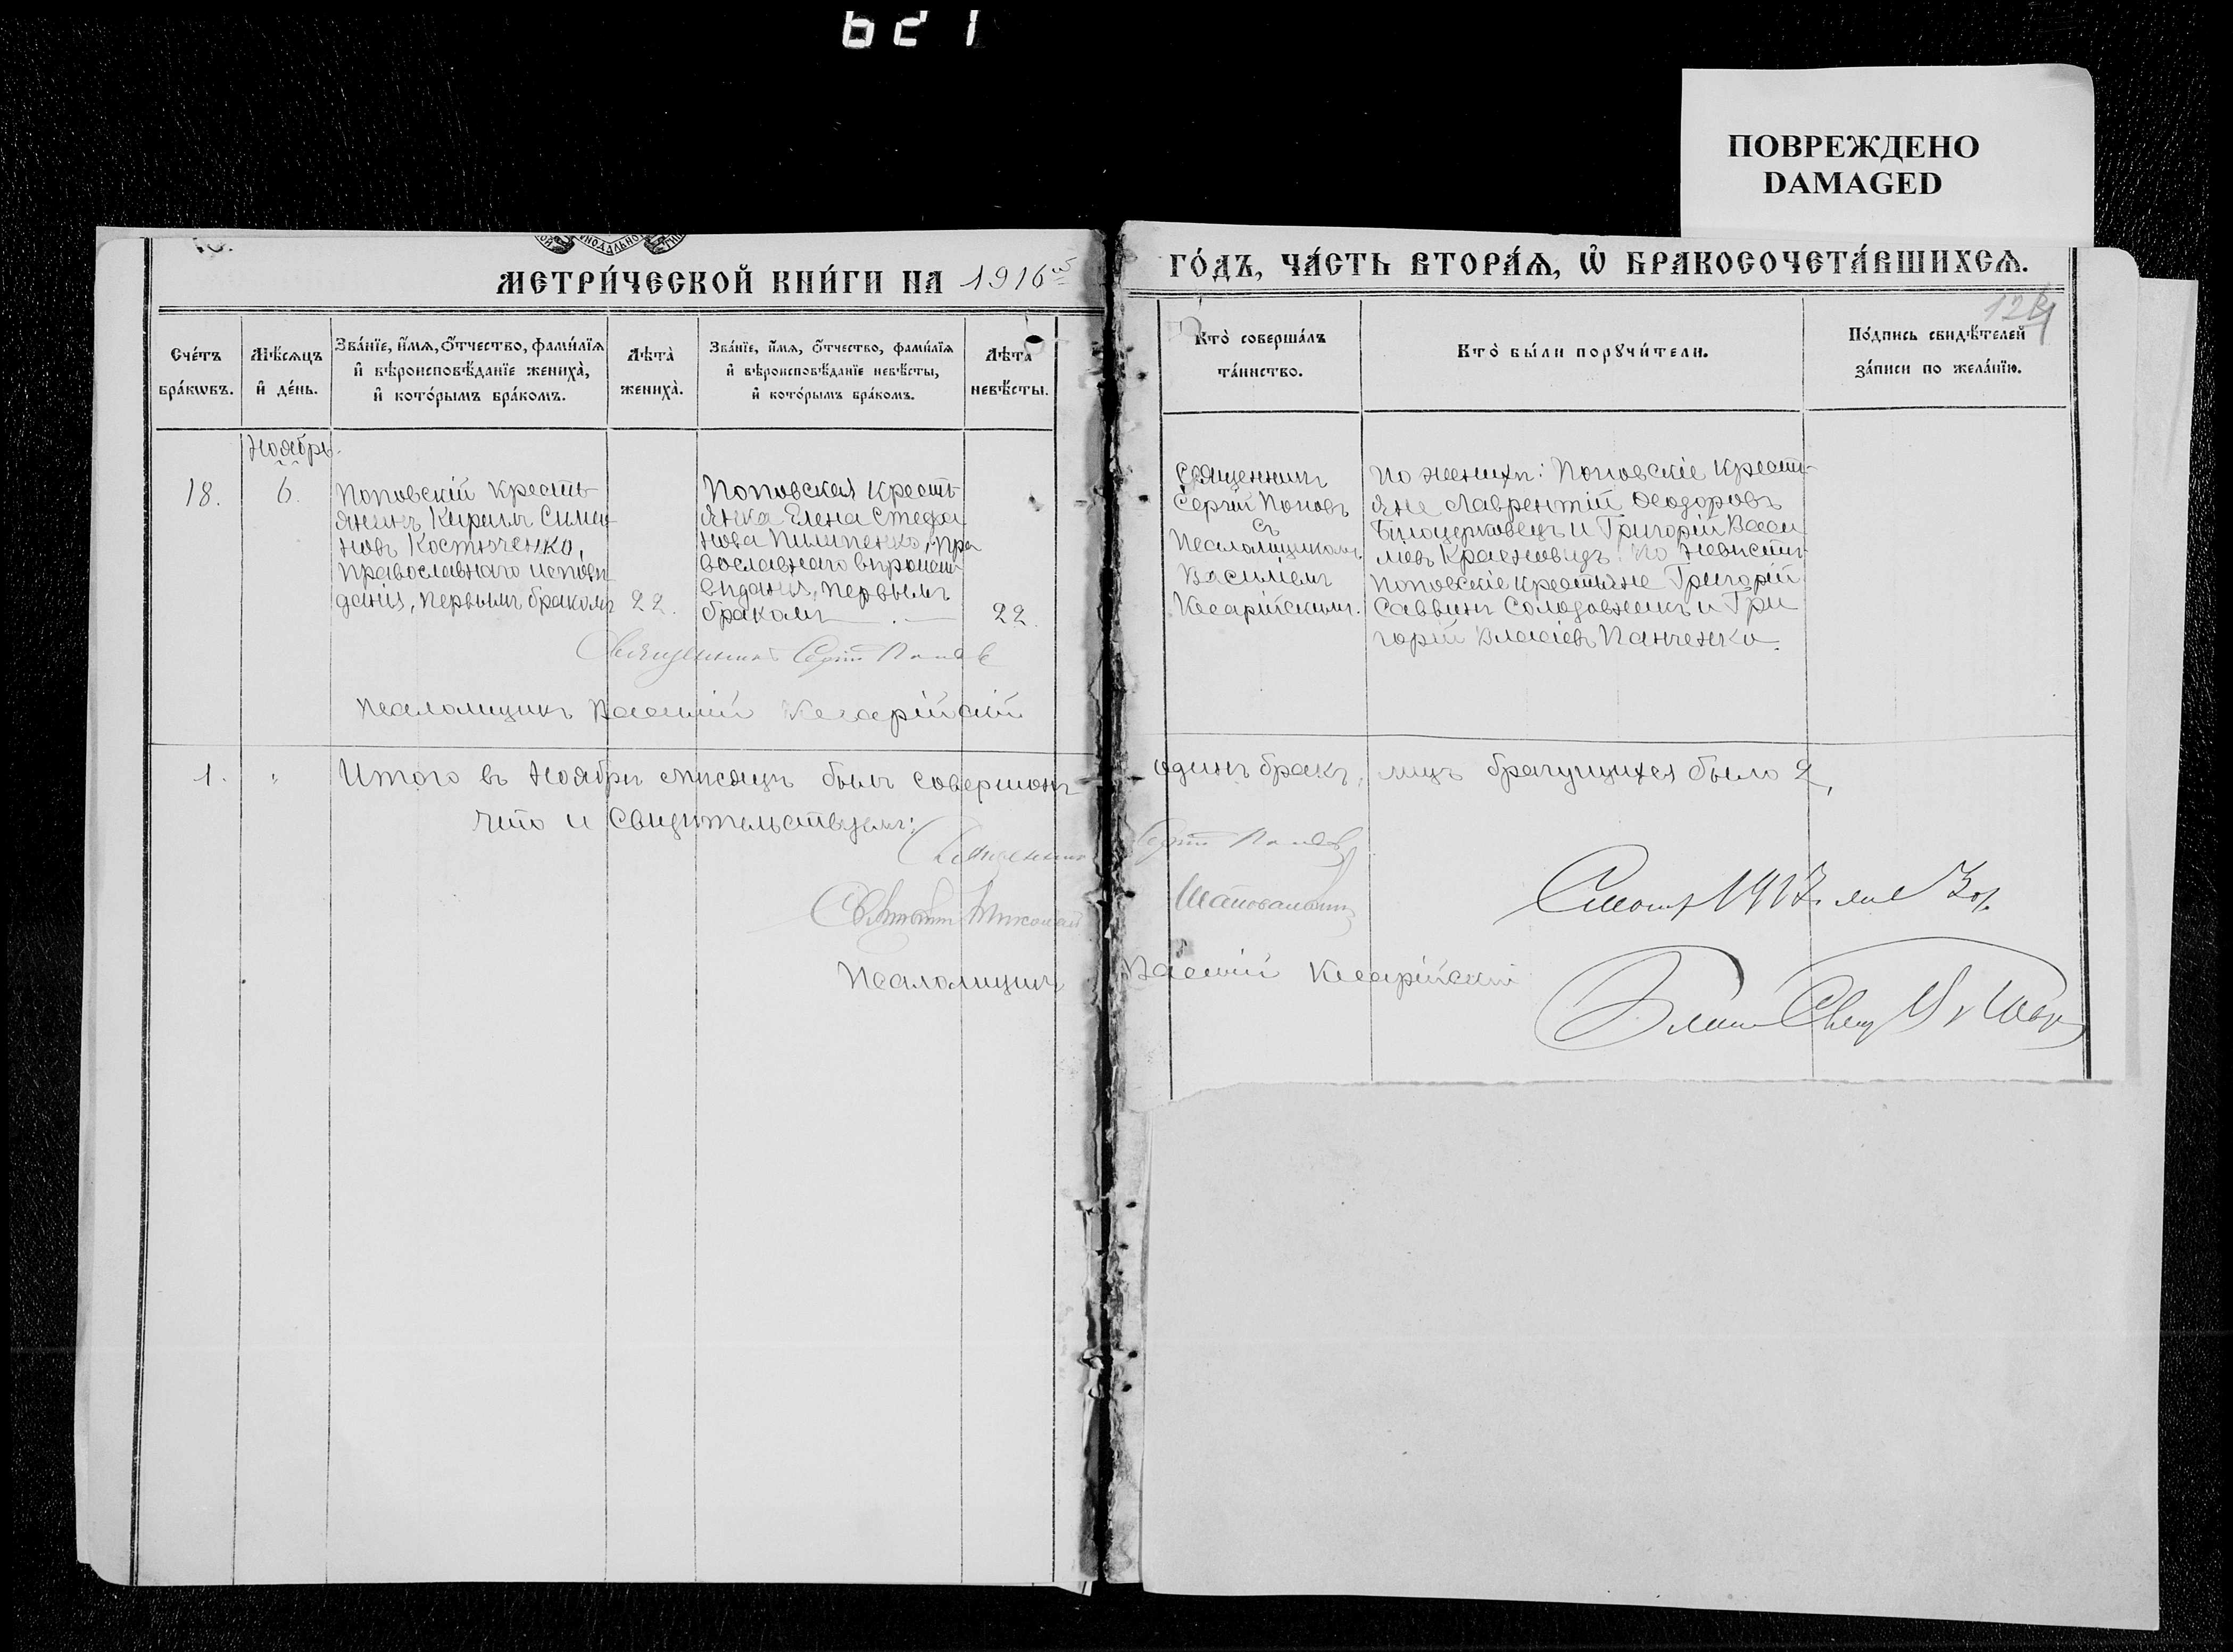 621
ПОВРЕЖДЕНО
DAMAGED
МЕТРИ́ЧЕСКОЙ КНИ́ГИ НА 1916й
ГО́ДЪ, ЧА́СТЬ ВТОРА́Я, Ѡ БРАКОСОЧЕТА́ВШИХСЯ.
124
Сче́тъ
бра́кѡвъ.
Мѣ́сяцъ
и де́нь.
Зва́нїе, и́мя, о́тчество, фами́лїя
и вѣроисповѣ́данїе жениха̀,
и кото́рымъ бра́комъ.
Лѣта̀
жениха̀.
Зва́нїе, и́мя, о́тчество, фами́лїя
и вѣроисповѣ́данїе невѣ́сты,
и кото́рымъ бра́комъ.
Лѣта̀
невѣ́сты.
Кто̀ соверша́лъ
та́инство.
Кто̀ бы́ли порꙋчи́тели.
По́дпись свидѣ́телей
за́писи по жела́нїю.
Ноябрь.
18.
6.
Поповскій кресть-
янинъ Кирилъ Симео
новъ Костюченко,
православнаго исповѣ
данія, первымъ бракомъ
22.
Поповская кресть-
янка Елена Стефа
нова Пилипенко, пра
вославнаго вѣроисп
вѣданія, первымъ
бракомъ
22.
Священникъ
Сергій Поповъ
съ
Псаломщикомъ
Василіемъ
Кесарійскимъ.
По женихѣ: Поповскіе крестъ-
яне Лаврентій Ѳеодоровъ
Бѣлоцерковецъ и Григорій Васи
ліевъ Краеновидъ. По невѣстѣ
Поповскіе крестьяне Григорій
Саввинъ Солодовникъ и Гри
горій Власіевъ Панченко.
Священникъ Сергій Поповъ
Псаломщикъ Василій Кесарійскій
1.
"
Итого въ Ноябрѣ мѣсяцѣ былъ совершонъ один бракъ, лицъ брачущихся было 2,
что и свидѣтельствуемъ:
Священникъ Сергій Поповъ
Николай Шаповаловъ
Псаломщикъ Василій Кесарійскій
1917